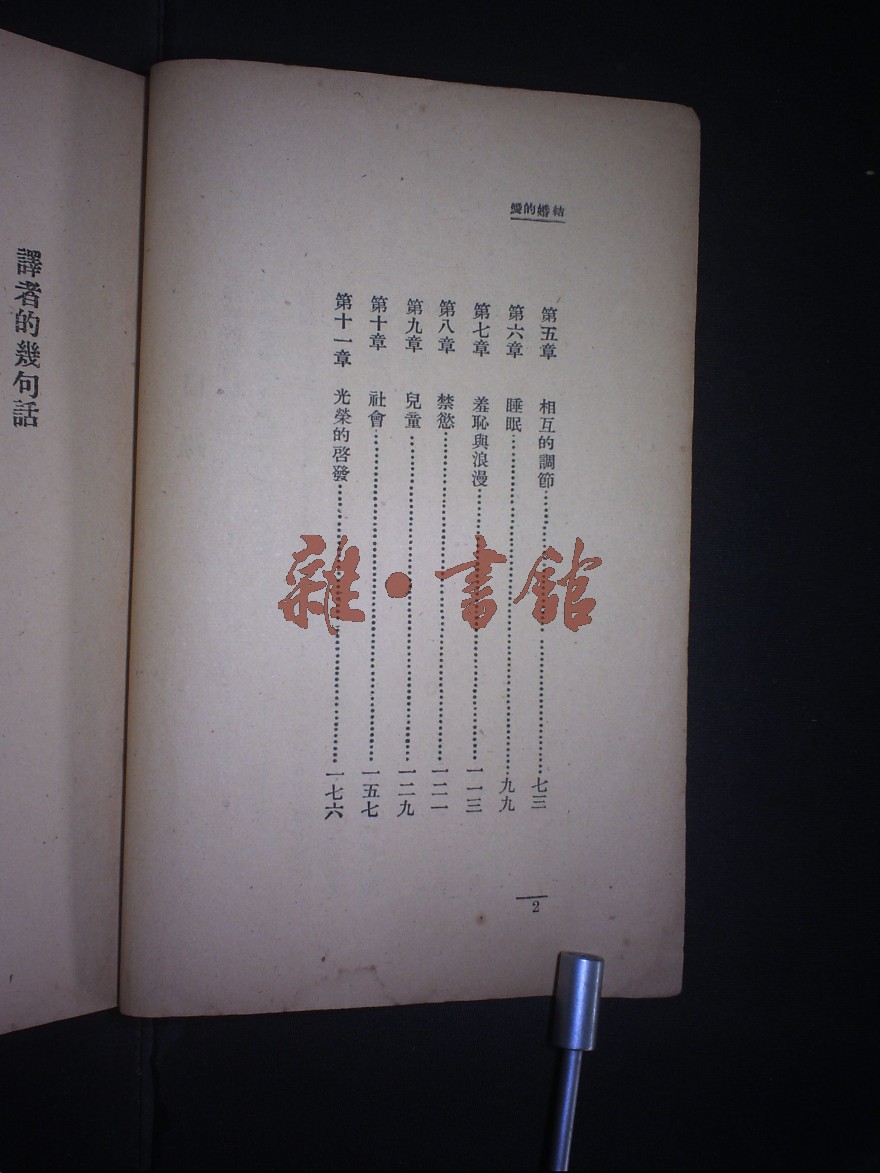 結婚的愛
第五章 相互的調節……七三
第六章 睡眠……九九
第七章 羞恥與浪漫……一一三
第八章 禁慾……一二一
第九章 兒童……一二九
第十章 社會……一五七
第十一章 光榮的啓發……一七六
2
譯者的幾句話
雜·書館